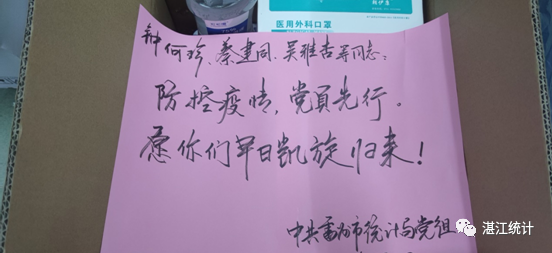 医用外科口罩
钟何珍、蔡建同、吴雅杏等同志：
防控疫情，党员先行。
愿你们早日凯旋归来！
中共雷州市统计局党组
湛江统计